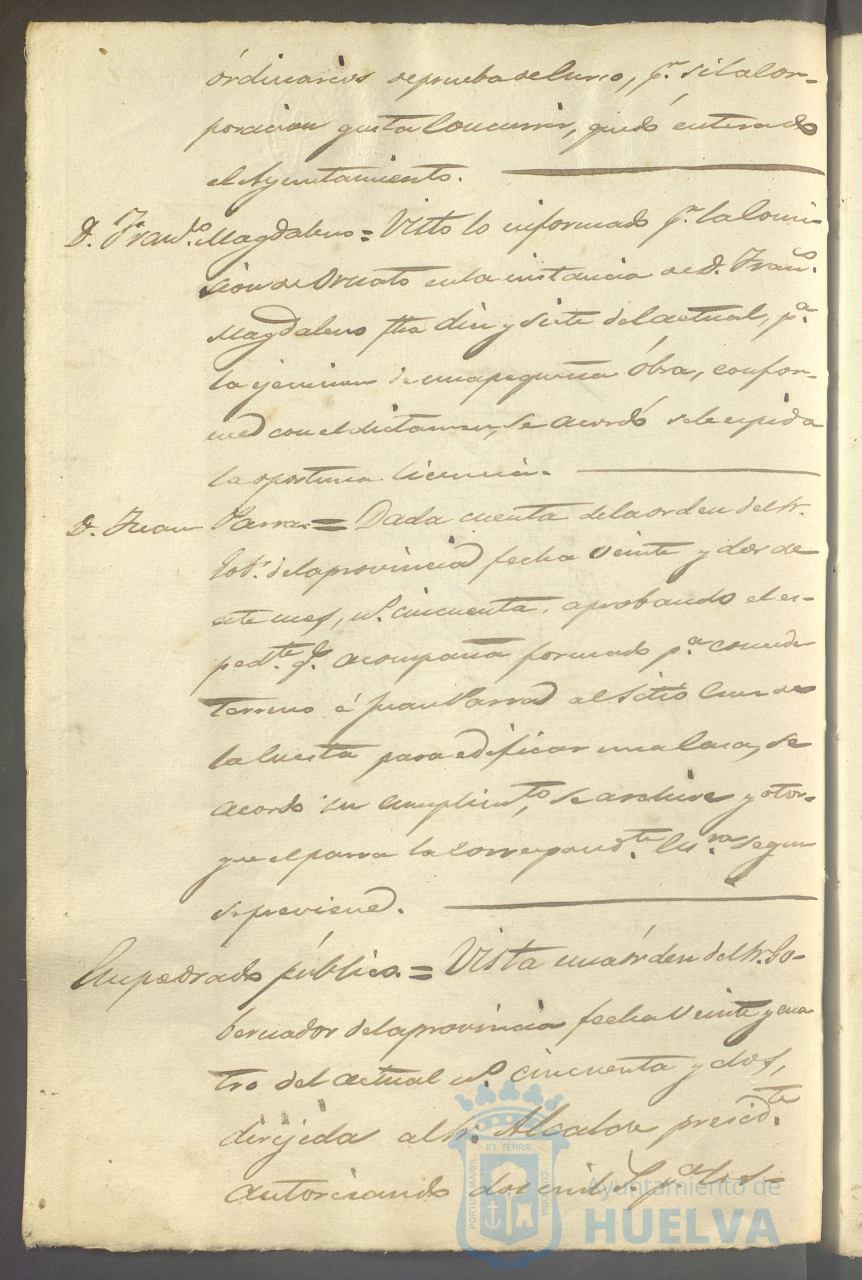 órdinarios de prueba de curso, pr. si la Cor-
poracion gusta Concurrir, quedó enterado
el Ayuntamiento.
D. Franco. Magdaleno = Visto lo informado pr. la Comi-
sion de Ornato en la instancia de D. Franco.
Magdaleno fha diez y siete del actual, pa.
la ejecucion de una pequeña óbra, confor-
me con el dictamen, se acordó se le espida
la oportuna licencia.
D. Juan Parra = Dada cuenta de la orden del Sr.
Gobr. de la provincia fecha veinte y dos de
este mes, no. cincuenta, aprobando el es-
pedte. qe. acompaña formado pa. conceder
terreno á Juan Parra al Sitio
la Cuesta para edificar una Casa, se
acordó su cumplimto., se archive y otor-
gue el parra la correspondte. Escra. segun
se previene.
Empedrado público = Vista una órden del Sr. Go-
bernador de la provincia fecha Veinte y cua-
tro del actual no. cincuenta y dos,
dirijida al Sr. Alcalde presidte.
autorizando dos mil
PORTUS MARIS
ET TERRÆ
CUSTODIA
Ayuntamiento de
HUELVA